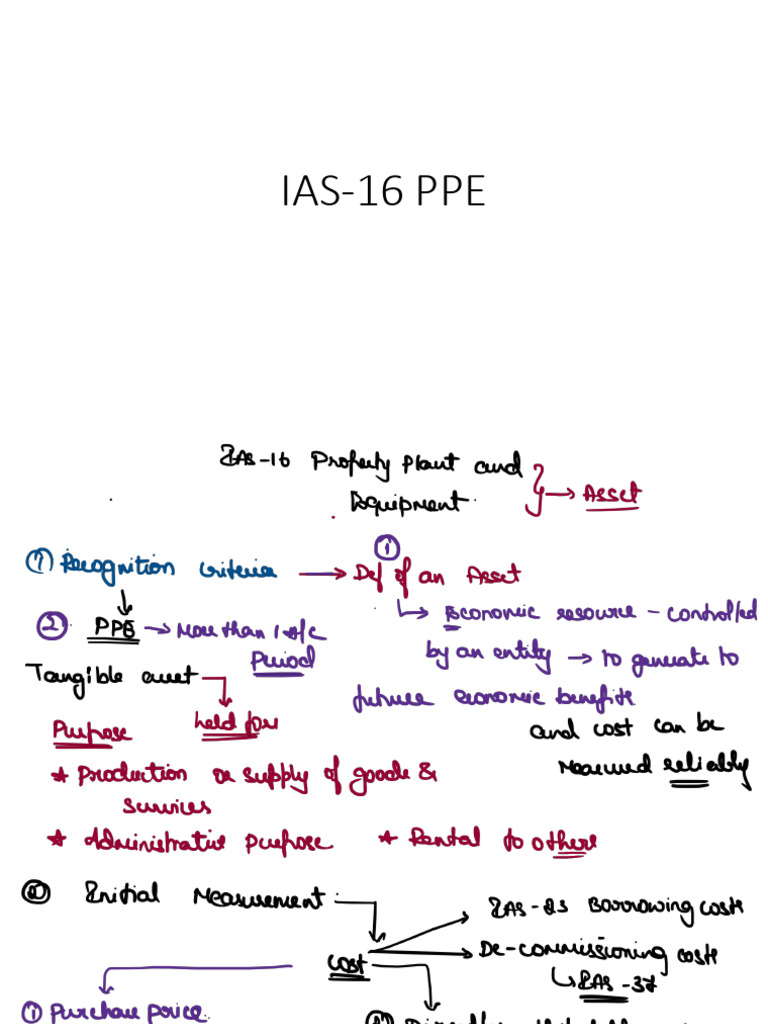 IAS-16 PPE
IAS-16 Property Plant and
Equipment } → Asset
① Recognition criteria → ① Def of an Asset
↳ Economic resource - controlled
② PPE → More than 1 a/c
Period
by an entity → to generate to
Tangible asset
future economic benefits
Purpose held for
and cost can be
measured reliably
* Production or supply of goods &
services
* Administrative purpose * Rental to others
② Initial Measurement
IAS-23 Borrowing costs
De-commissioning costs
↳ IAS-37
cost
① Purchase price